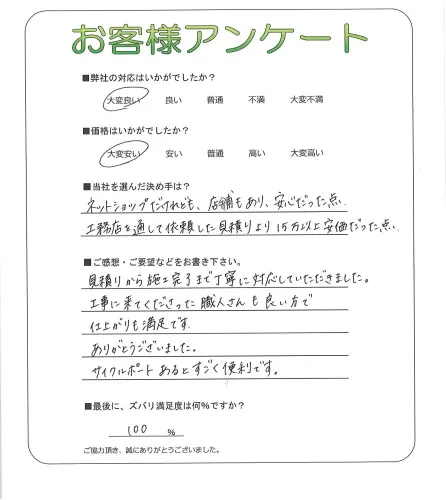 お客様アンケート
■弊社の対応はいかがでしたか?
大変良い 良い 普通 不満 大変不満
■価格はいかがでしたか?
大変安い 安い 普通 高い 大変高い
■当社を選んだ決め手は?
ネットショップだけれども、店舗もあり、安心だった点
工務店を通して依頼した見積りより15万以上安価だった点
■ご感想・ご要望などをお書き下さい。
見積りから施工完了まで丁寧に対応していただきました。
工事に来てくださった職人さんも良い方で
仕上がりも満足です
ありがとうございました。
サイクルポートあるとすごく便利です。
■最後に、ズバリ満足度は何%ですか?
100 %
ご協力頂き、誠にありがとうございました。